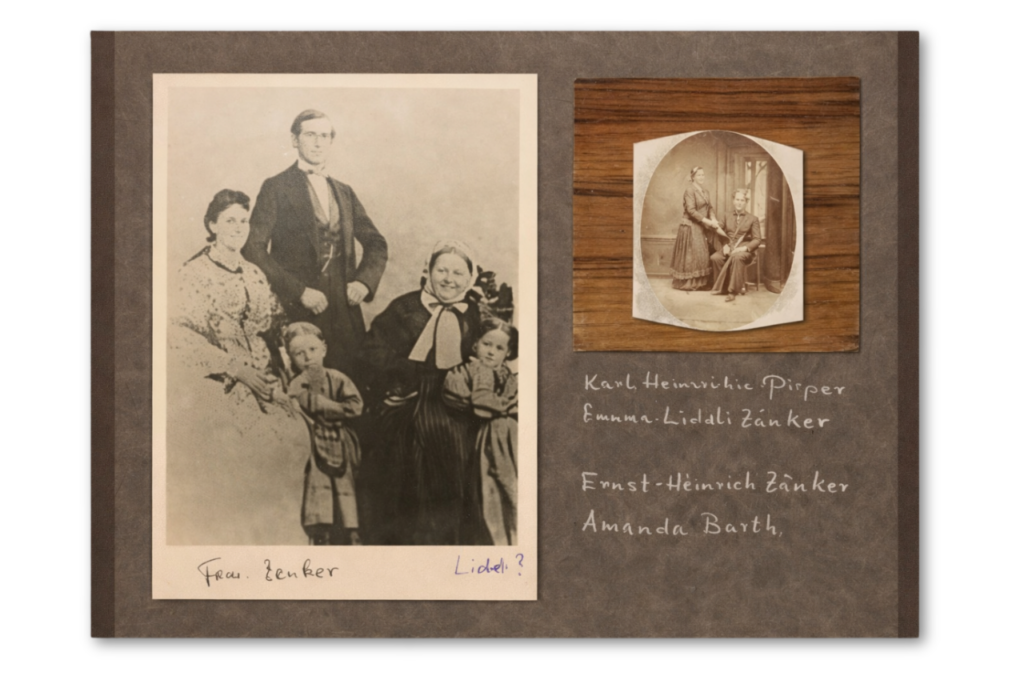 Frau. Zenker
Liddi?
Karl. Heinrihic. Pirper
Emnma. Liddli Zänker
Ernst-Heinrich Zänker
Amanda Barth,